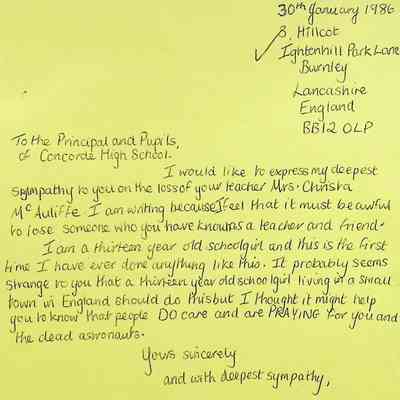 30th January 1986
3, Hillcot
Ightenhill Park Lane
Burnley
Lancashire
England
BB12 0LP
To the Principal and Pupils,
of Concorde High School.
I would like to express my deepest
sympathy to you on the loss of your teacher Mrs. Christa
McAuliffe I am writing because I feel that it must be awful
to lose someone who you have known as a teacher and friend.
I am a thirteen year old schoolgirl and this is the first
time I have ever done anything like this. It probably seems
strange to you that a thirteen year old schoolgirl living in a small
town in England should do this but I thought it might help
you to know that people DO care and are PRAYING for you and
the dead astronauts.
Yours sincerely
and with deepest sympathy,